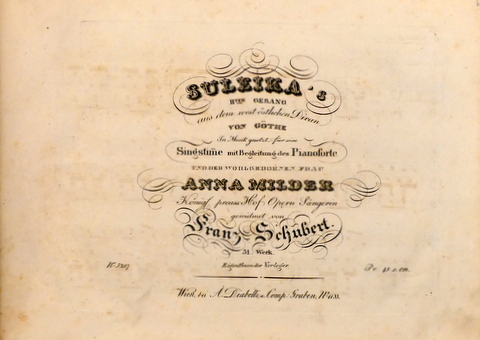 SULEIKA's
IIter GESANG
aus dem west-östlichen Divan
VON GÖTHE
In Musik gesetzt für eine
Singstime mit Begleitung des Pianoforte
UND DER WOHLGEBORNEN FRAU
ANNA MILDER
Königl. preuss. Hof Opern Sängeren
gewidmet von
Franz Schubert.
31. Werk.
Eigenthum der Verleger.
Wien, bei A. Diabelli u. Comp. Graben, No 1133.